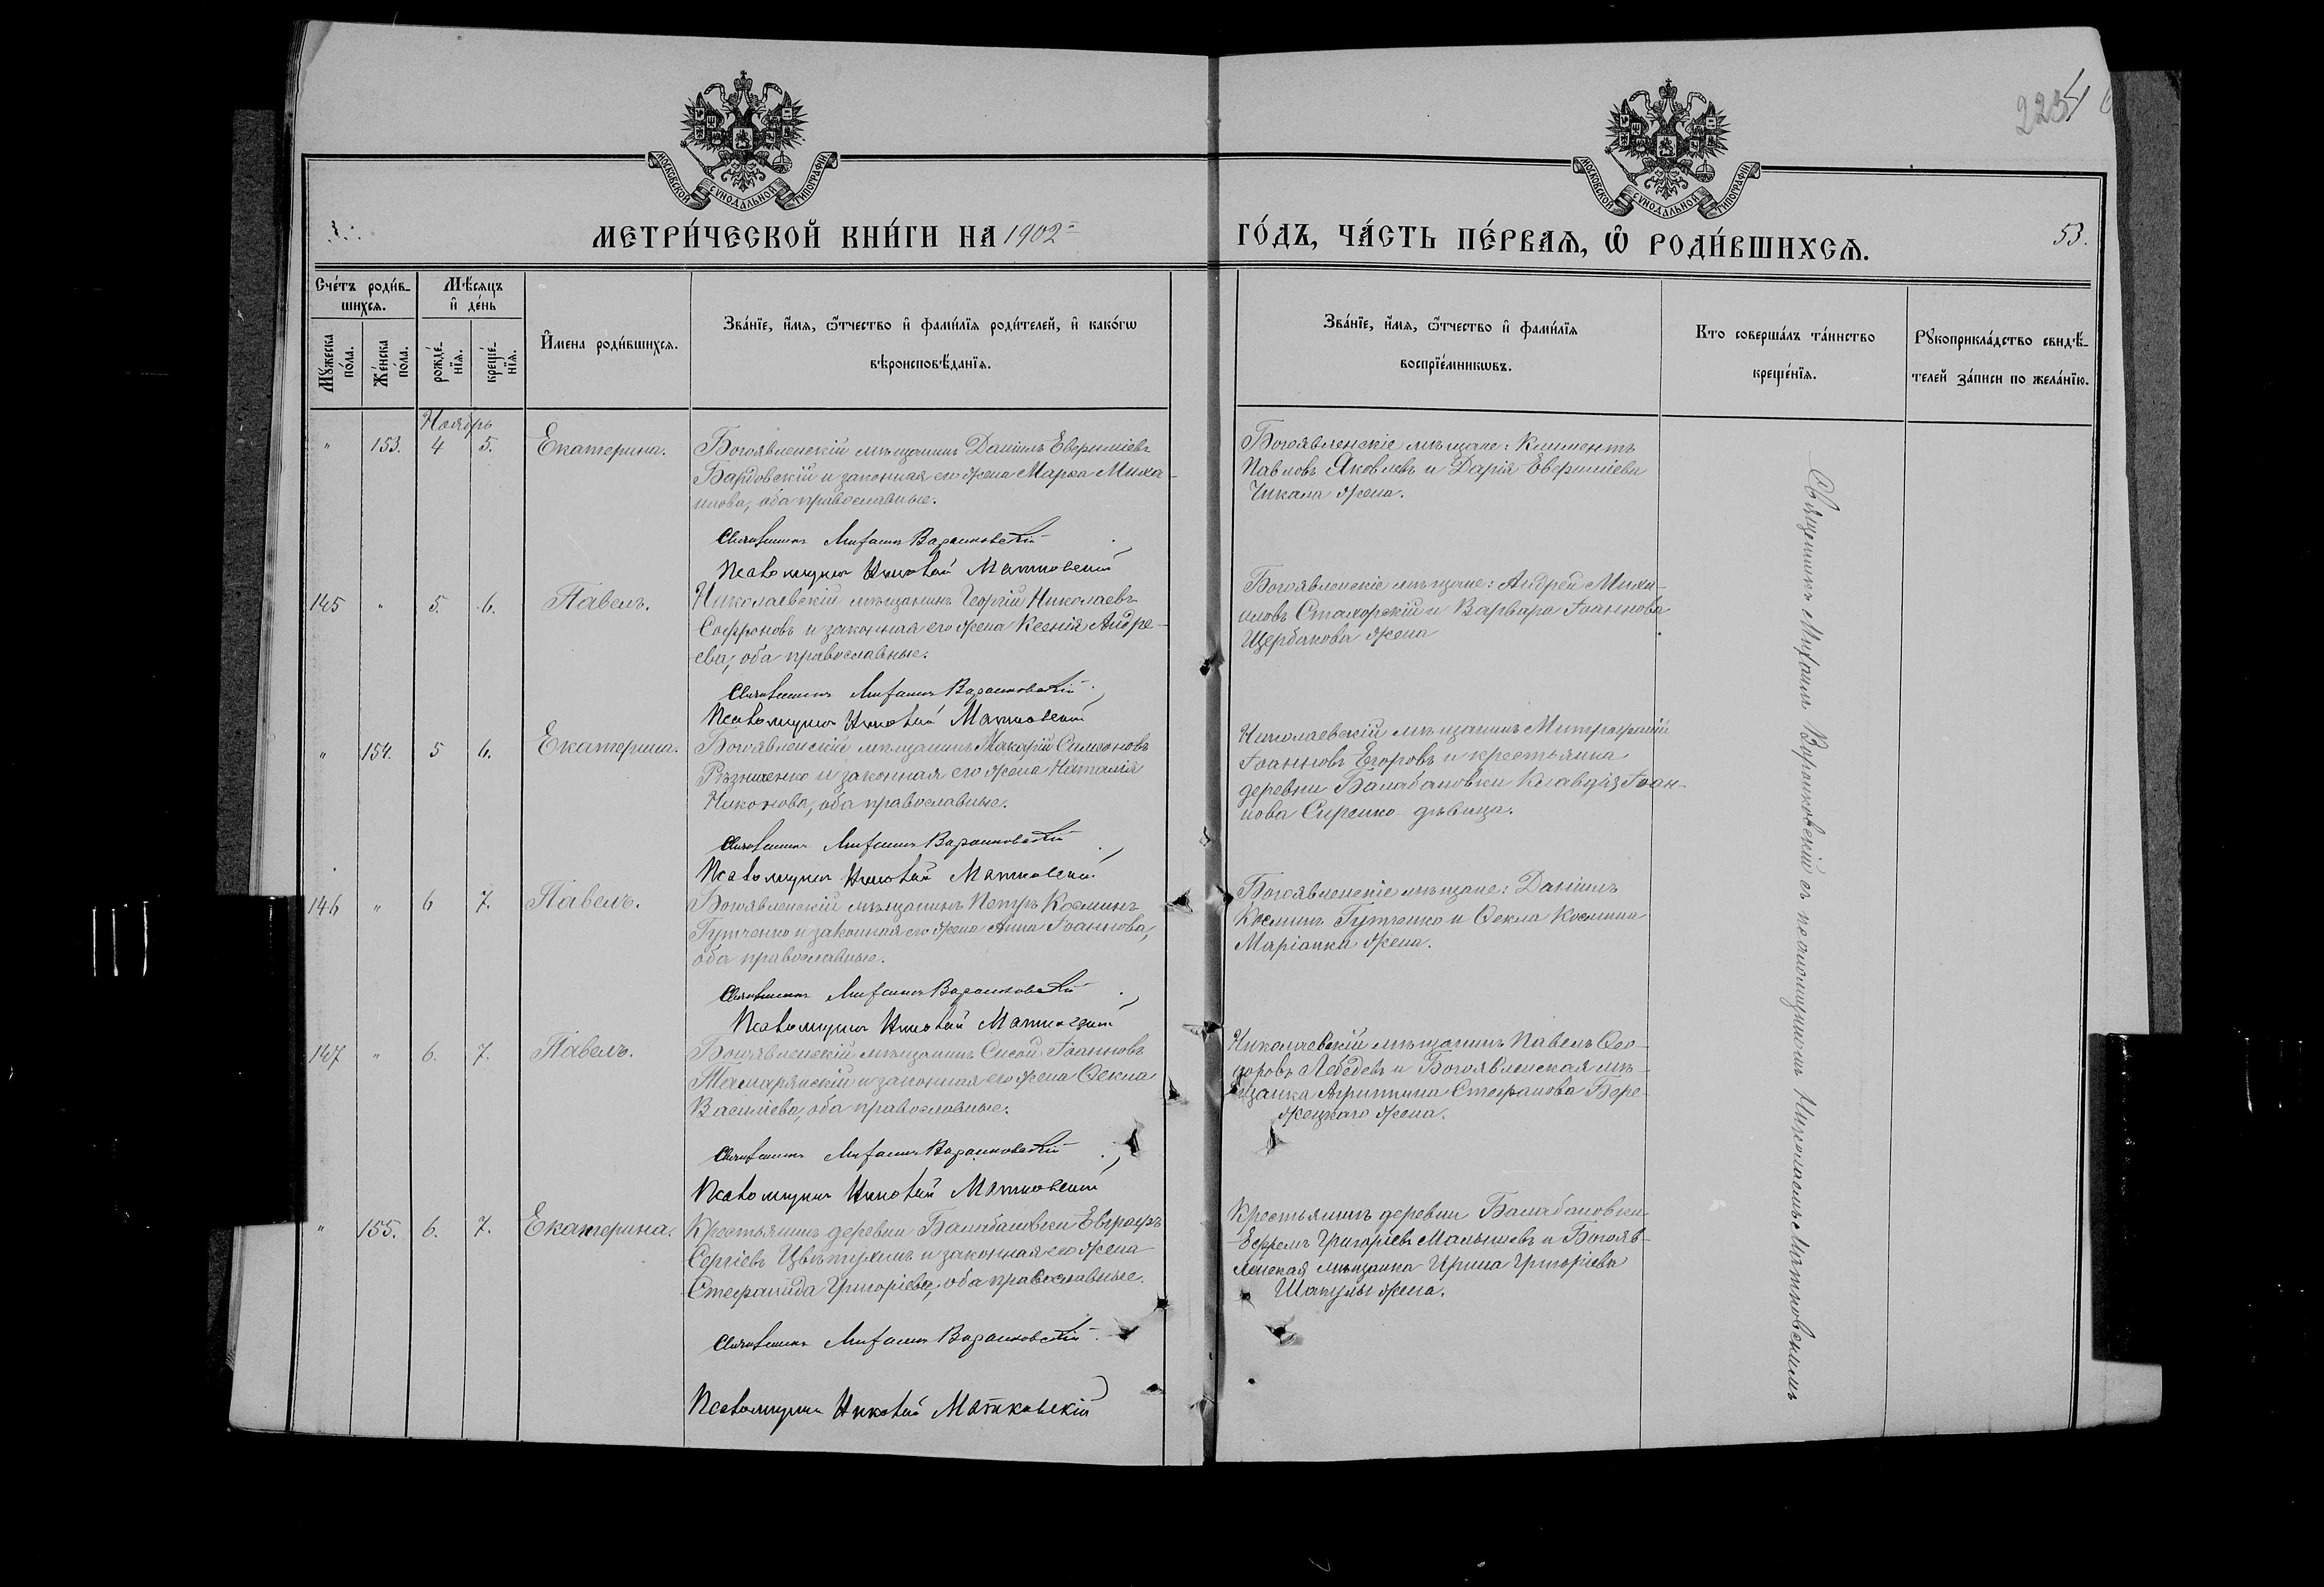 2234
МОСКОВСКОЙ СѴНОДАЛЬНОЙ ТИПОГРАФІИ
МОСКОВСКОЙ СѴНОДАЛЬНОЙ ТИПОГРАФІИ
МЕТРИ́ЧЕСКОЙ КНИ́ГИ НА 1902
ГО́ДЪ, ЧА́СТЬ ПЕ́РВАѦ, Ѡ҆ РОДИ́ВШИХСѦ.
53.
Сче́тъ роди́в-
шихсѧ.
Мѣ́сѧцъ
и҆ де́нь
Мꙋ́жеска
по́ла.
Же́нска
по́ла.
рожде́-
нїѧ.
креще́-
нїѧ.
И҆мена роди́вшихсѧ.
Зва́нїе, и҆́мѧ, ѻ҆́тчество и҆ фами́лїѧ роди́телей, и҆ како́гѡ
вѣроисповѣ́данїѧ.
Зва́нїе, и҆́мѧ, ѻ҆́тчество и҆ фами́лїѧ
воспрїе́мникѡвъ.
Кто соверша́лъ та́инство
креще́нїѧ.
Рꙋкоприкла́дство свидѣ́-
телей за́писи по жела́нїю.
Ноябрь
" 153. 4 5. Екатерина.
Богоявленскій мѣщанинъ Даніилъ Евфиміевъ
Бардовскій и законная его жена Марѳа Миха-
илова, оба православные.
Священникъ Михаилъ Варшковскій
Псаломщикъ Николай Матковскій
Богоявленскіе мѣщане: Климентъ
Павловъ Яковлевъ и Дарія Евфиміева
Чикала жена.
145 " 5. 6. Павелъ.
Николаевскій мѣщанинъ Георгій Николаевъ
Софроновъ и законная его жена Ксенія Андре-
ева, оба православные.
Священникъ Михаилъ Варшковскій
Псаломщикъ Николай Матковскій
Богоявленскіе мѣщане: Андрей Миха-
иловъ Стаморскій и Варвара Іоаннова
Щербакова жена
" 154. 5 6. Екатерина.
Богоявленскій мѣщанинъ Макарій Симоновъ
Рѣзниченко и законная его жена Наталія
Никонова, оба православные.
Священникъ Михаилъ Варшковскій
Псаломщикъ Николай Матковскій
Николаевскій мѣщанинъ Митрофаній
Іоанновъ Егоровъ и крестьянка
деревни Балабановки Клавдія Іоан-
нова Сиренко дѣвица.
146 " 6 7. Павелъ.
Богоявленскій мѣщанинъ Петръ Косминъ
Гутченко и законная его жена Анна Іоаннова,
оба православные.
Священникъ Михаилъ Варшковскій
Псаломщикъ Николай Матковскій
Богоявленскіе мѣщане: Даніилъ
Косминъ Гутченко и Ѳекла Космина
Маріанки жена.
147 " 6. 7. Павелъ.
Богоявленскій мѣщанинъ Сисой Іоанновъ
Тамарянскій и законная его жена Ѳекла
Василіева, оба православные.
Священникъ Михаилъ Варшковскій
Псаломщикъ Николай Матковскій
Николаевскій мѣщанинъ Павелъ Ѳео-
доровъ Лебедевъ и Богоявленская мѣ-
щанка Агрипина Стефанова Бере-
жецкаго жена.
" 155. 6. 7. Екатерина.
Крестьянинъ деревни Балабановки Евграфъ
Сергіевъ Цвѣтухинъ и законная его жена
Стефанида Григоріева, оба православные.
Священникъ Михаилъ Варшковскій
Псаломщикъ Николай Матковскій
Крестьянинъ деревни Балабановки
Ефремъ Григоріевъ Малышевъ и Богояв-
ленская мѣщанка Ирина Григоріева
Шапулы жена.
Священникъ Михаилъ Варшковскій съ псаломщикомъ Николаемъ Матковскимъ